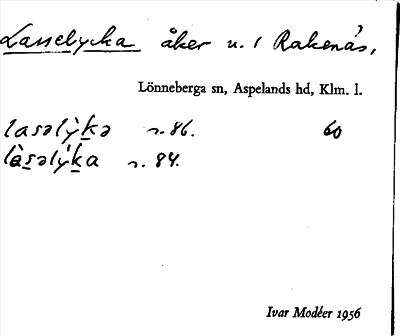 Lasselycka åker u. 1 Rakenäs,
Lönneberga sn, Aspelands hd, Klm. l.
lasəlỳḵa s. 86. 60
làs̱əlýḵa s. 84.
Ivar Modéer 1956